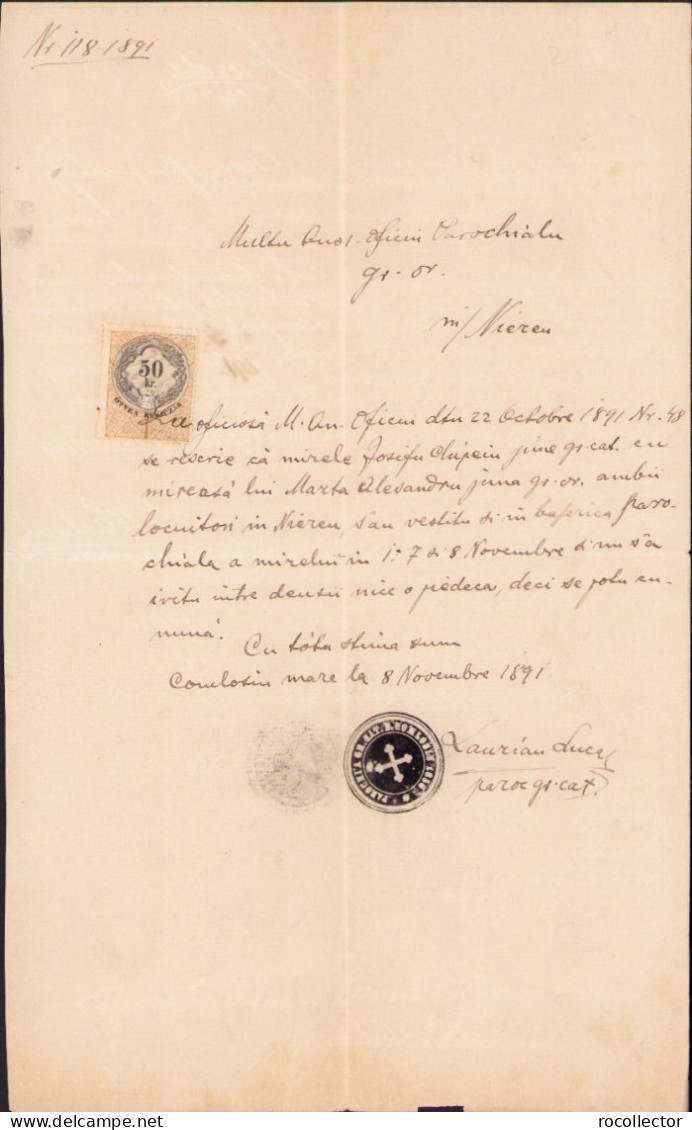 Nr 118-1891
Multu Onor. Oficiu Parochialu
gr. or.
in/ Niereu
50
kr.
ÖTVEN KRAJCZÁR
La oficiosă M. On. Oficiu dtu 22 Octobre 1891 Nr. 48
se rescrie că mirele Josifu june gr. cat. cu
miréasă lui Marta Alesandru juna gr. or. ambii
locuitori in Niereu, s'au vestitu si in baserica paro-
chiala a mirelui in 1: 7 si 8 Novembre si nu s'a
ivitu intre densii nice o pedeca, deci se potu cu-
nuná.
Cu tóta stima sum
Comlosiu mare la 8 Novembre 1891
Laurian Luca
paroc gr. cat.
rocollector